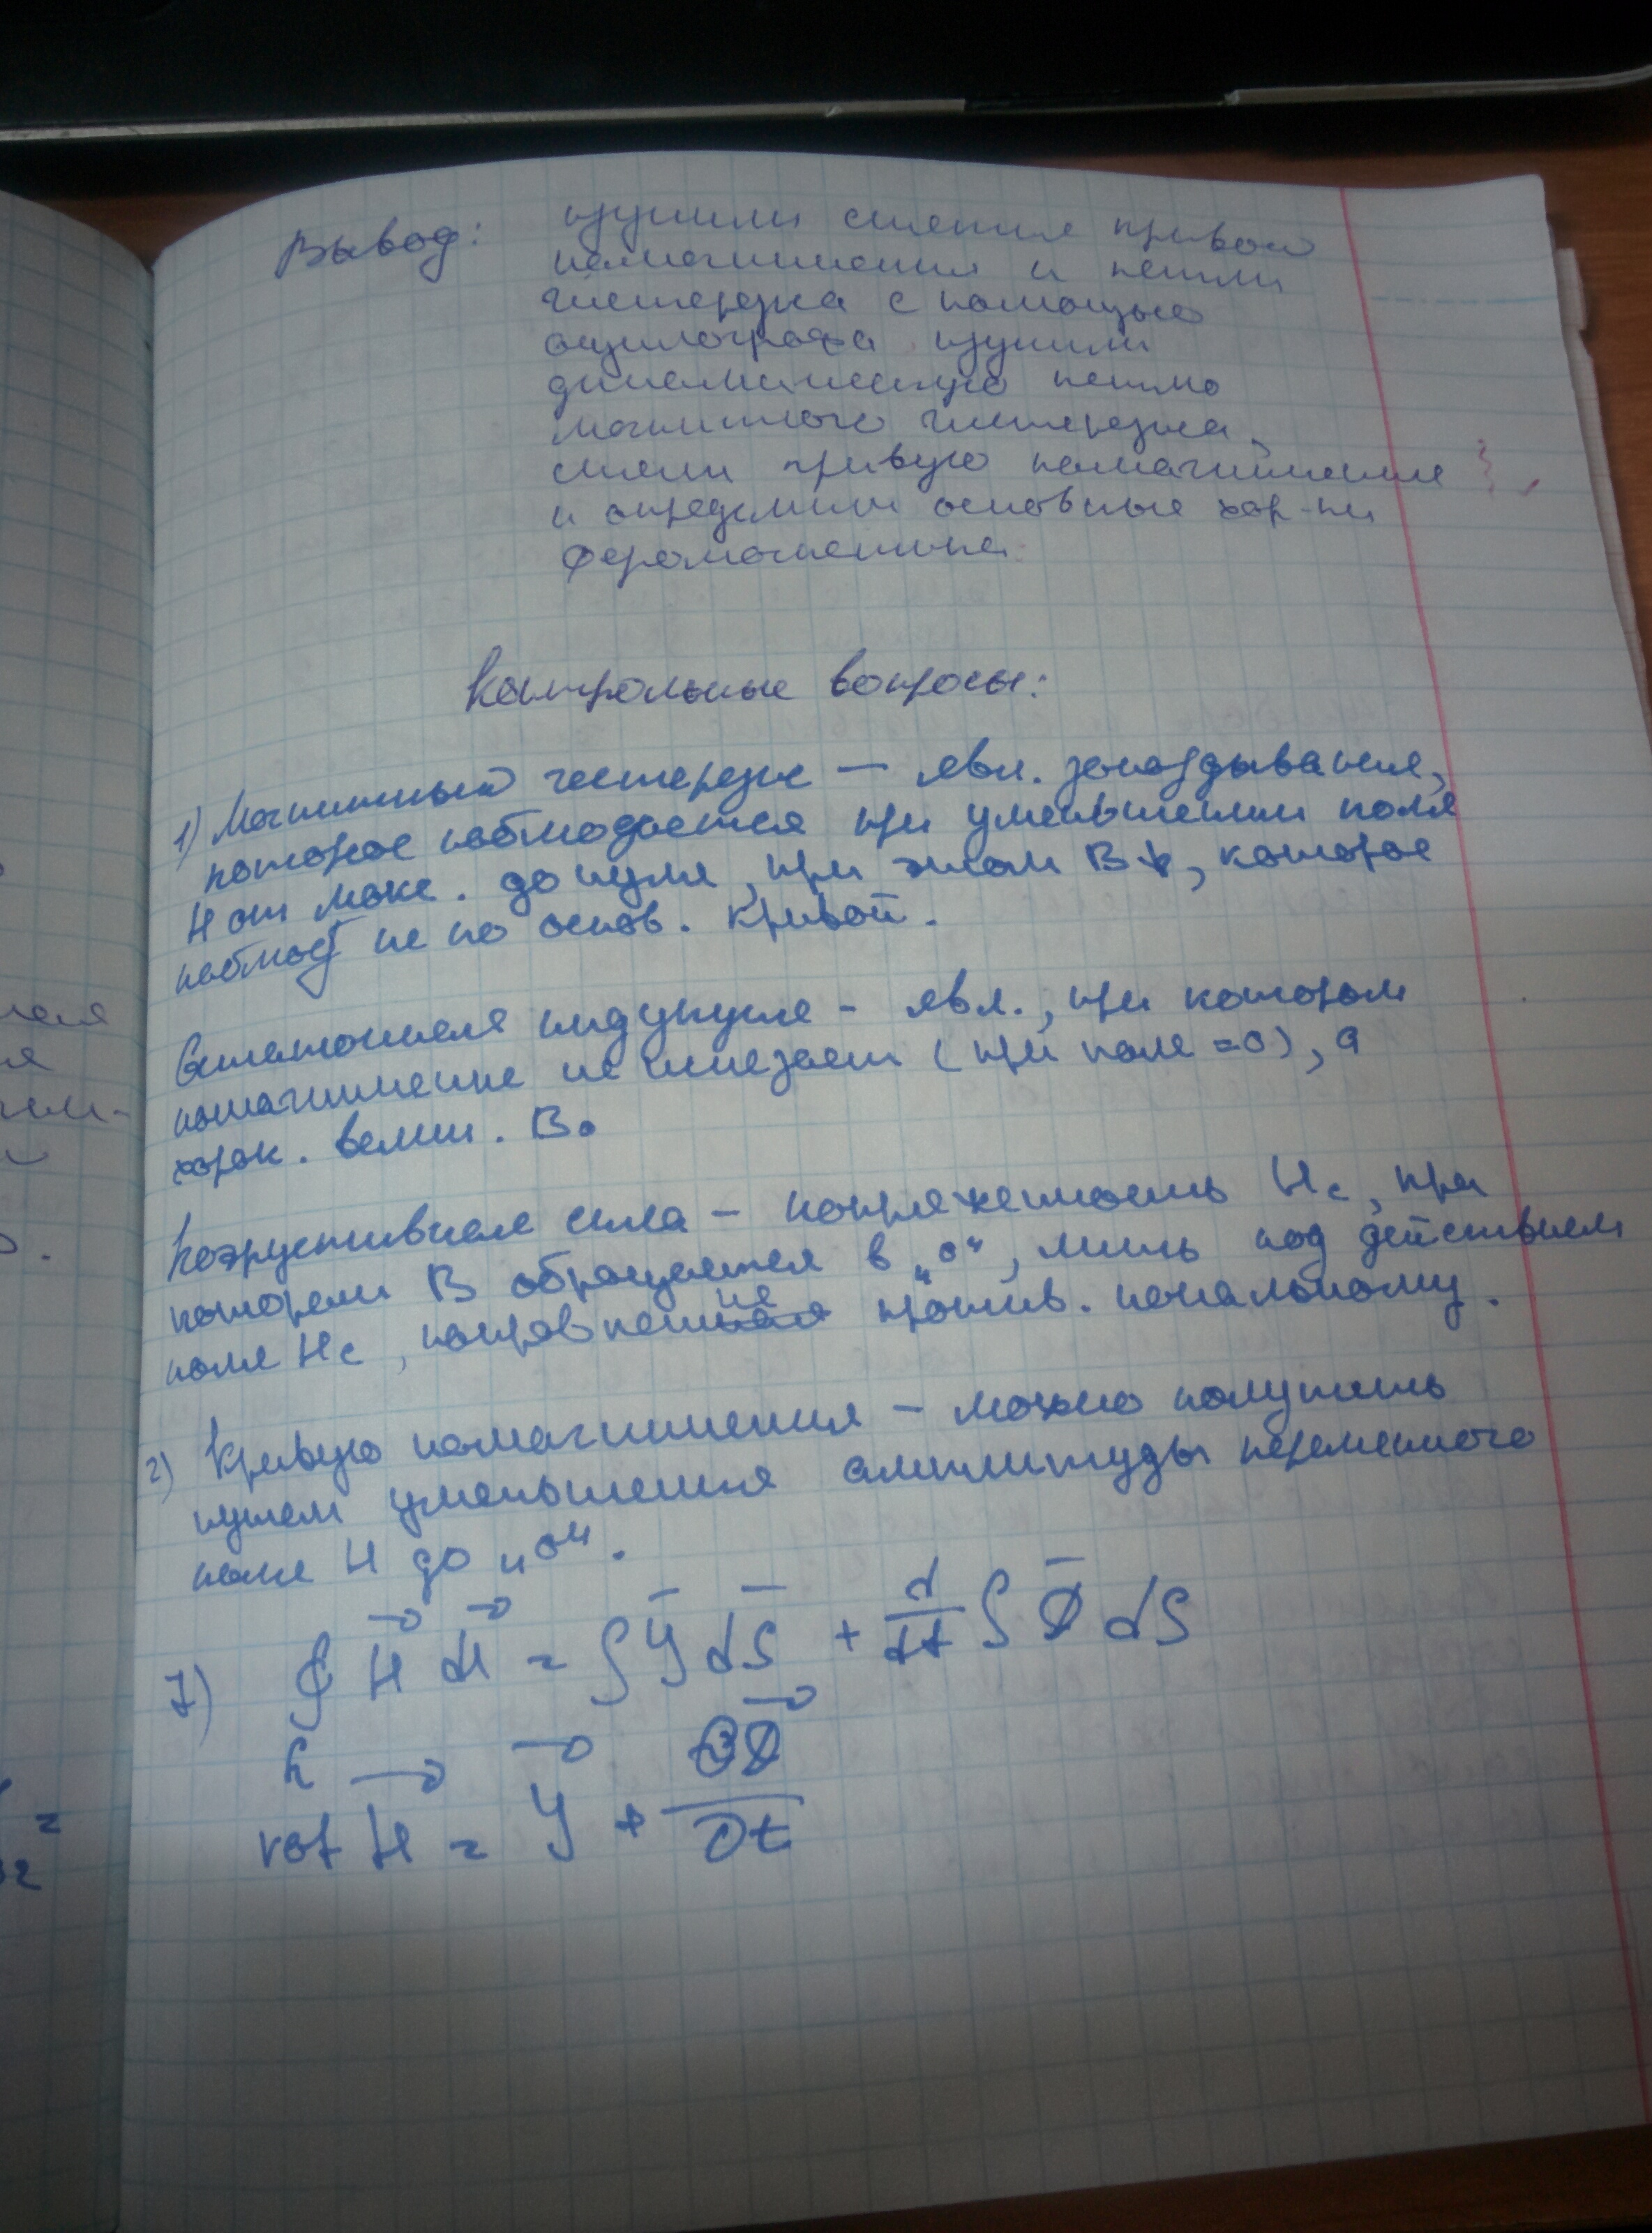 Вывод: изучили снятия кривой
намагничения и петли
гистерезиса с помощью
осцилографа изучили
динамическую петлю
магнитного гистерезиса,
сняли кривую намагничения
и определили основные хар-ки
ферромагнетика.
Контрольные вопросы:
1) Магнитный гистерезис — явл. запаздывания,
которое наблюдается при уменьшении поля
H от макс. до нуля, при этом B, которое
наблюд не по основ. кривой.
Остаточная индукция - явл., при котором
намагничение не исчезает (при поле =0), а
харак. велич. B₀
Коэрцитивная сила – напряженность Hc, при
котором B обращается в „0“, лишь под действием
поля Hc, направленные против. начальному.
2) Кривую намагничения – можно получить
путем уменьшения амплитуды переменного
поля H до „0“.
7) ∮ H⃗ dl⃗ = ∫ j̄ dS̄ + d/dt ∫ D̄ dS
L
rot H⃗ = j⃗ + ∂D⃗/∂t